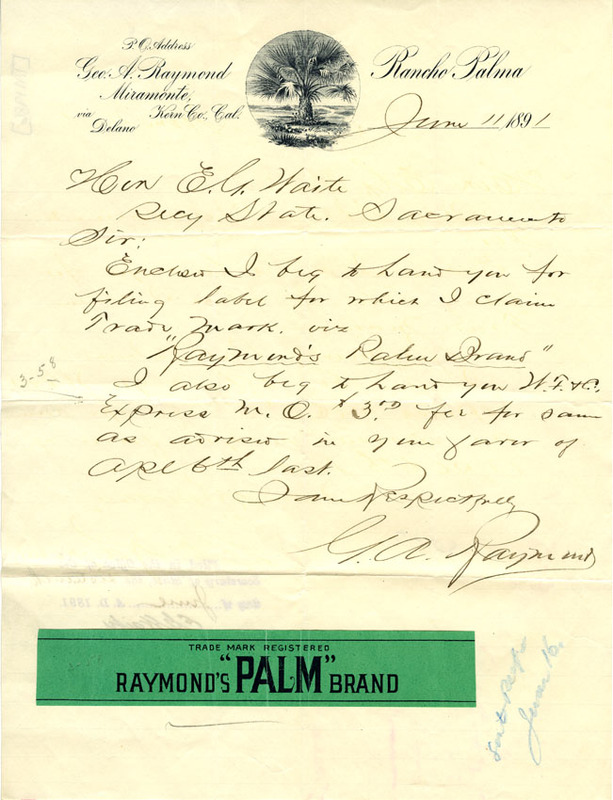 P.O. Address
Geo. A. Raymond
Miramonte,
via Kern Co., Cal.
Delano
Rancho Palma
June 11 1891
Hon E. G. Waite
Secy State. Sacramento
Sir:
Enclosed I beg to hand you for
filing label for which I claim
Trade Mark. viz
"Raymond's Palm Brand"
3-58
I also beg to hand you W. F. & Co.
Express M. O. $3.00 fee for same
as advised in your favor of
Apl 6th last.
I am Respectfully
G. A. Raymond
June A. D. 1891
TRADE MARK REGISTERED
RAYMOND'S "PALM" BRAND
June 16.